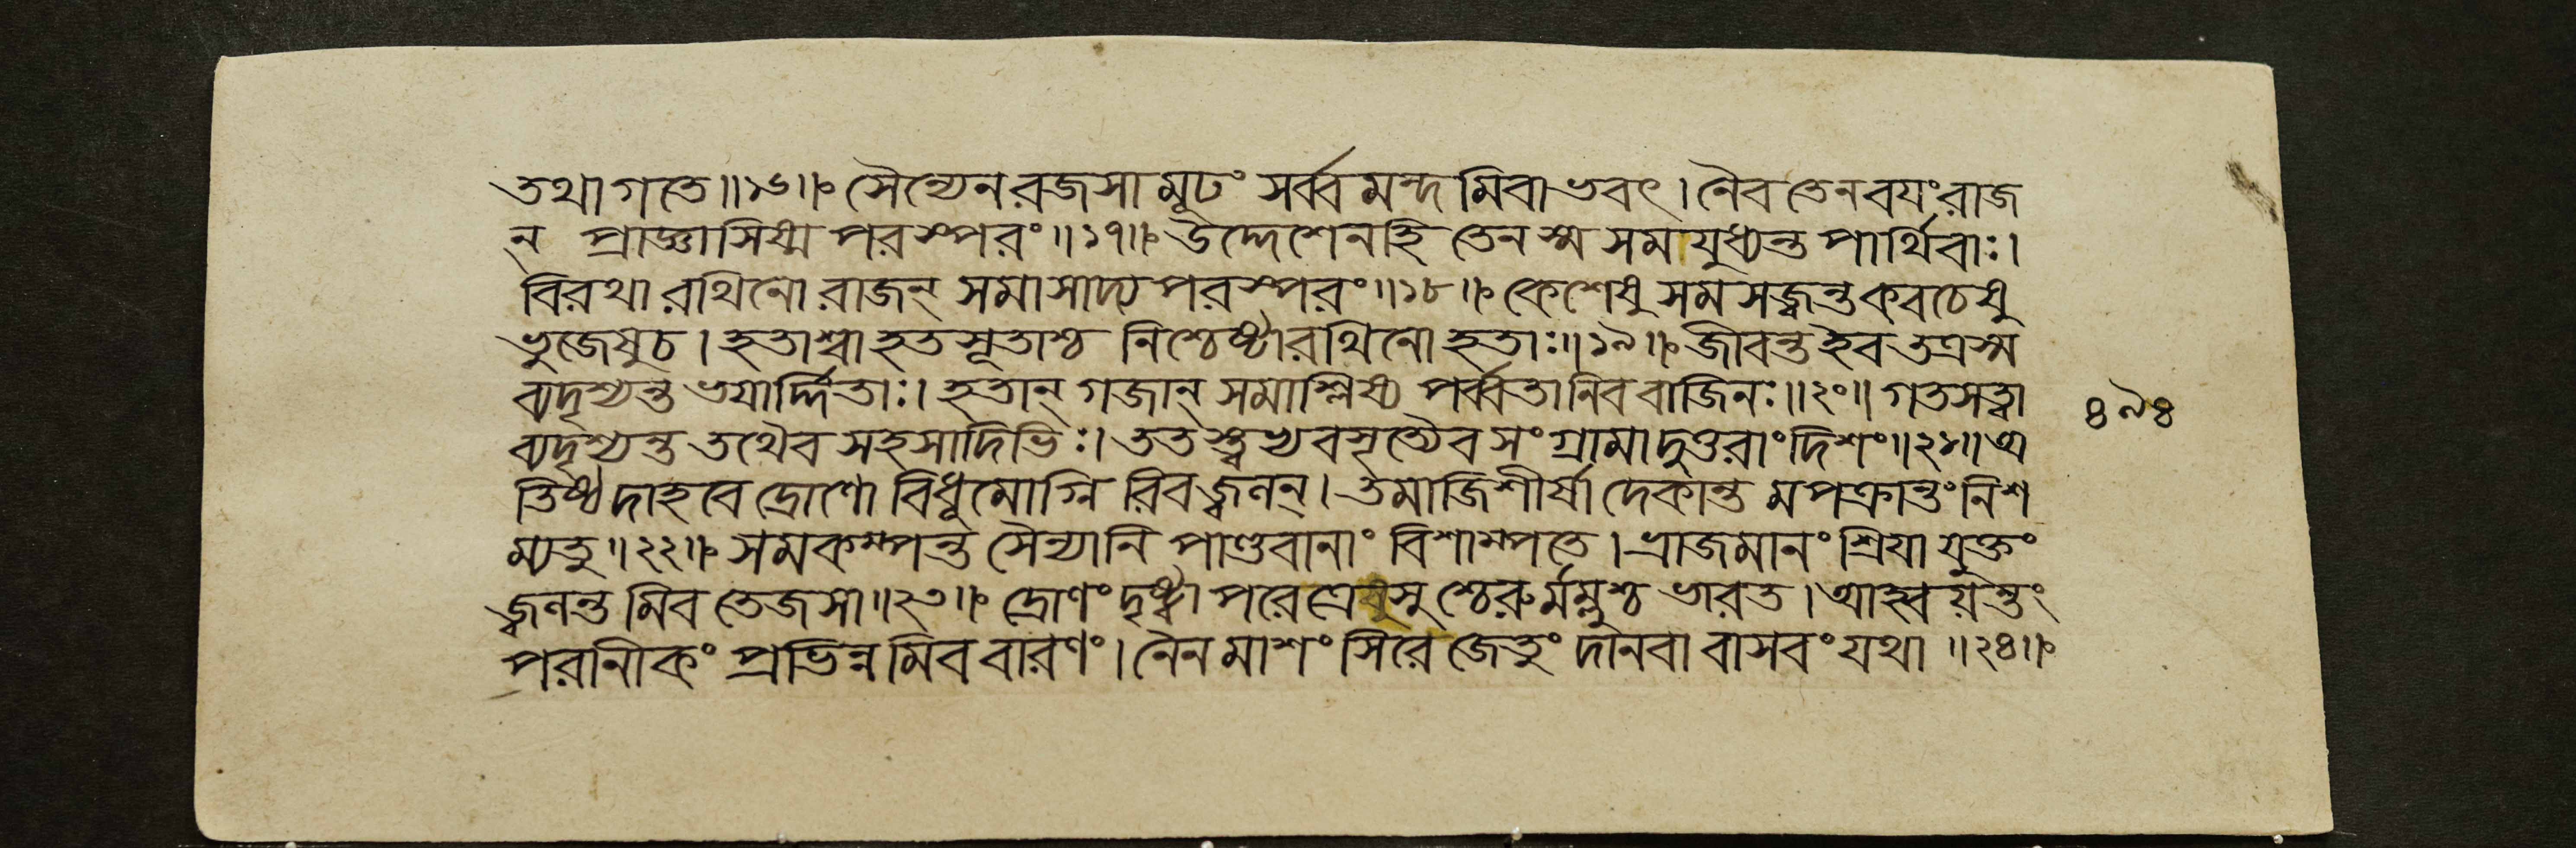 তথাগতে॥১৬॥ সৈন্যেন রজসা মূঢং সর্ব্বমন্দমিবাভবৎ। নৈব তেন বযং রাজ
ন্ প্রাজ্ঞাসিষ্ম পরস্পরং॥১৭॥ উদ্দেশেন হি তেন স্ম সমযুধ্যন্ত পার্থিবাঃ।
বিরথা রথিনো রাজন্ সমাসাদ্য পরস্পরং॥১৮॥ কেশেষু সমসজ্জন্ত কবচেষু
ভুজেষু চ। হতাশ্বা হতসূতাশ্চ নিশ্চেষ্টা রথিনো হতাঃ॥১৯॥ জীবন্ত ইব তত্র স্ম
ব্যদৃশ্যন্ত ভযার্দ্দিতাঃ। হতান্ গজান্ সমাশ্লিষ্য পর্ব্বতানিব বাজিনঃ॥২০॥ গতসত্বা
ব্যদৃশ্যন্ত তথৈব সহসাদিভিঃ। ততস্ত্বভ্যবসৃত্যৈব সংগ্রামাদুত্তরাং দিশং॥২১॥ অ
তিষ্ঠদাহবে দ্রোণো বিধূমোগ্নিরিব জ্বলন্। তমাজিশীর্ষাদেকান্তমপক্রান্তং নিশ
ম্য তু॥২২॥ সমকম্পন্ত সৈন্যানি পাণ্ডবানাং বিশাম্পতে। ভ্রাজমানং শ্রিযা যুক্তং
জ্বলন্তমিব তেজসা॥২৩॥ দ্রোণং দৃষ্ট্বা পরে ত্রেষুস্সুশ্চেরুর্মম্লুশ্চ ভারত। আহ্বযন্তং
পরানীকং প্রভিন্নমিব বারণং। নৈনমাশংসিরে জেতুং দানবা বাসবং যথা॥২৪॥
৪৯৪